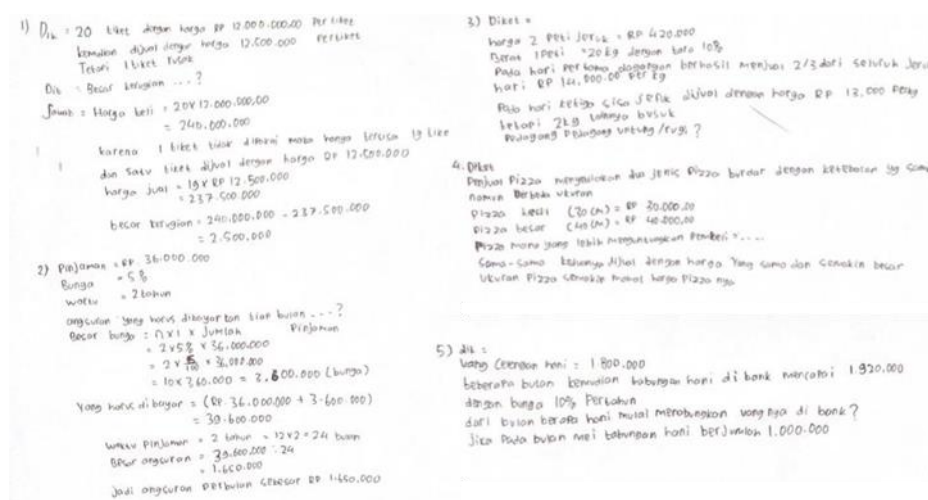 1) Dik : 20 tiket dengan harga RP 12.000.000,00 Per tiket
kemudian dijual dengan harga 12.500.000 Pertiket
Tetapi 1 tiket rusak
Dit : Besar kerugian ...?
Jawab : Harga beli = 20 x 12.000.000,00
= 240.000.000
karena 1 tiket tidak maka hanya tersisa 19 tike
dan satu tiket dijual dengan harga RP 12.500.000
harga jual = 19 x RP 12.500.000
= 237.500.000
besar kerugian = 240.000.000 - 237.500.000
= 2.500.000
2) Pinjaman = RP. 36.000.000
Bunga = 5%
waktu = 2 tahun
angsuran yang harus dibayarkan tiap bulan ...?
Besar bunga : n x i x Jumlah Pinjaman
= 2 x 5% x 36.000.000
= 2 x 5/100 x 36.000.000
= 10 x 360.000 = 3.600.000 (bunga)
Yang harus di bayar = (RP. 36.000.000 + 3.600.000)
= 39.600.000
waktu Pinjaman = 2 tahun = 12 x 2 = 24 bulan
Besar angsuran = 39.600.000 : 24
= 1.650.000
Jadi angsuran perbulan sebesar RP 1.650.000
3) Diket =
harga 2 Peti Jeruk = RP 420.000
Berat 1 Peti = 20 kg dengan tara 10%
Pada hari pertama berhasil menjual 2/3 dari seluruh Jeru
hari RP 14.000.00 Per kg
Pada hari ketiga sisa Jeruk dijual dengan harga RP 13.000 Perkg
tetapi 2 kg busuk
Pedagang Untung/rugi ?
4. Diket
Penjual Pizza dua jenis Pizza bundar dengan ketebalan yg sam
namun Berbeda ukuran
Pizza kecil (30 cm) = RP 30.000,00
Pizza besar (40 cm) = RP 40.000,00
Pizza mana yang lebih menguntungkan Pembeli = ....
Sama-sama keduanya dijual dengan harga Yang sama dan semakin besar
ukuran Pizza semakin mahal harga Pizza nya
5) dik :
Uang hani = 1.800.000
beberapa bulan kemudian tabungan hani di bank mencapai 1.920.000
dengan bunga 10% Pertahun
dari bulan berapa hani mulai menabungkan uangnya di bank?
Jika Pada bulan mei tabungan hani berjumlah 1.000.000